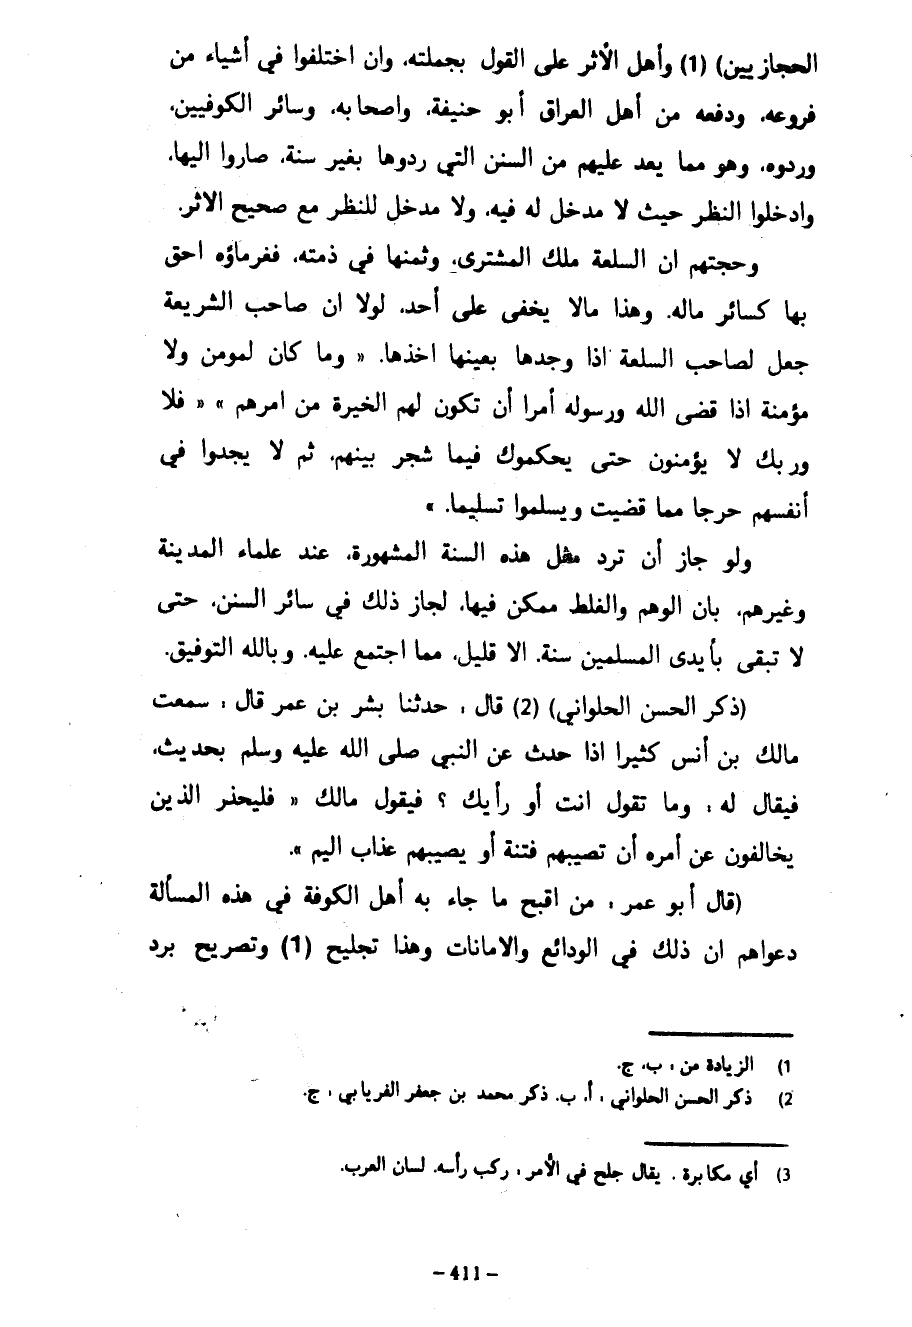 الحجازيين) (1) وأهل الأثر على القول بجملته، وان اختلفوا في أشياء من
فروعه، ودفعه من أهل العراق أبو حنيفة، واصحابه، وسائر الكوفيين،
وردوه، وهو مما يعد عليهم من السنن التي ردوها بغير سنة، صاروا اليها،
وادخلوا النظر حيث لا مدخل له فيه، ولا مدخل للنظر مع صحيح الاثر.
وحجتهم ان السلعة ملك المشترى، وثمنها في ذمته، فغرماؤه احق
بها كسائر ماله. وهذا مالا يخفى على أحد، لولا ان صاحب الشريعة
جعل لصاحب السلعة اذا وجدها بعينها اخذها. « وما كان لمومن ولا
مؤمنة اذا قضى الله ورسوله أمرا أن تكون لهم الخيرة من امرهم » « فلا
وربك لا يؤمنون حتى يحكموك فيما شجر بينهم، ثم لا يجدوا في
أنفسهم حرجا مما قضيت ويسلموا تسليما. »
ولو جاز أن ترد مثل هذه السنة المشهورة، عند علماء المدينة
وغيرهم، بان الوهم والغلط ممكن فيها، لجاز ذلك في سائر السنن، حتى
لا تبقى بأيدى المسلمين سنة. الا قليل، مما اجتمع عليه. وبالله التوفيق.
(ذكر الحسن الحلواني) (2) قال : حدثنا بشر بن عمر قال : سمعت
مالك بن أنس كثيرا اذا حدث عن النبي صلى الله عليه وسلم بحديث،
فيقال له : وما تقول انت أو رأيك ؟ فيقول مالك « فليحذر الذين
يخالفون عن أمره أن تصيبهم فتنة أو يصيبهم عذاب اليم ».
(قال أبو عمر : من اقبح ما جاء به أهل الكوفة في هذه المسألة
دعواهم ان ذلك في الودائع والامانات وهذا تجليح (1) وتصريح برد
1) الزيادة من : ب، ج.
2) ذكر الحسن الحلواني : أ. ب. ذكر محمد بن جعفر الفريابي : ج.
3) أي مكابرة . يقال جلح في الأمر : ركب رأسه. لسان العرب.
- 411 -